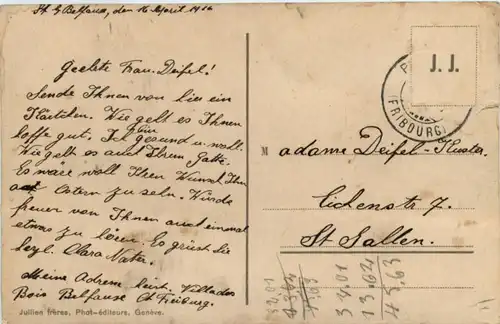 St. g Belfaux, den 16 April 1916
Geehrte Frau. Deifel!
Sende Ihnen von hier ein
Kärtchen. Wie geht es Ihnen
hoffe gut. Ich bin gesund u. wohl.
Wie geht es auch Ihrem Gatte.
Es wäre woll Ihren Wunsch Ihn
auf Ostern zu sehn. Würde
freuen von Ihnen auch einmal
etwas zu hören. Es grüst Sie
herzl. Clara Nater.
Meine Adress heist. Villa des
Bois Belfaux Ct Freiburg.
Jullien frères, Phot-éditeurs, Genève.
J. J.
(FRIBOURG)
Madame Deifel-Kuster.
Eichenstr 7.
St Gallen.